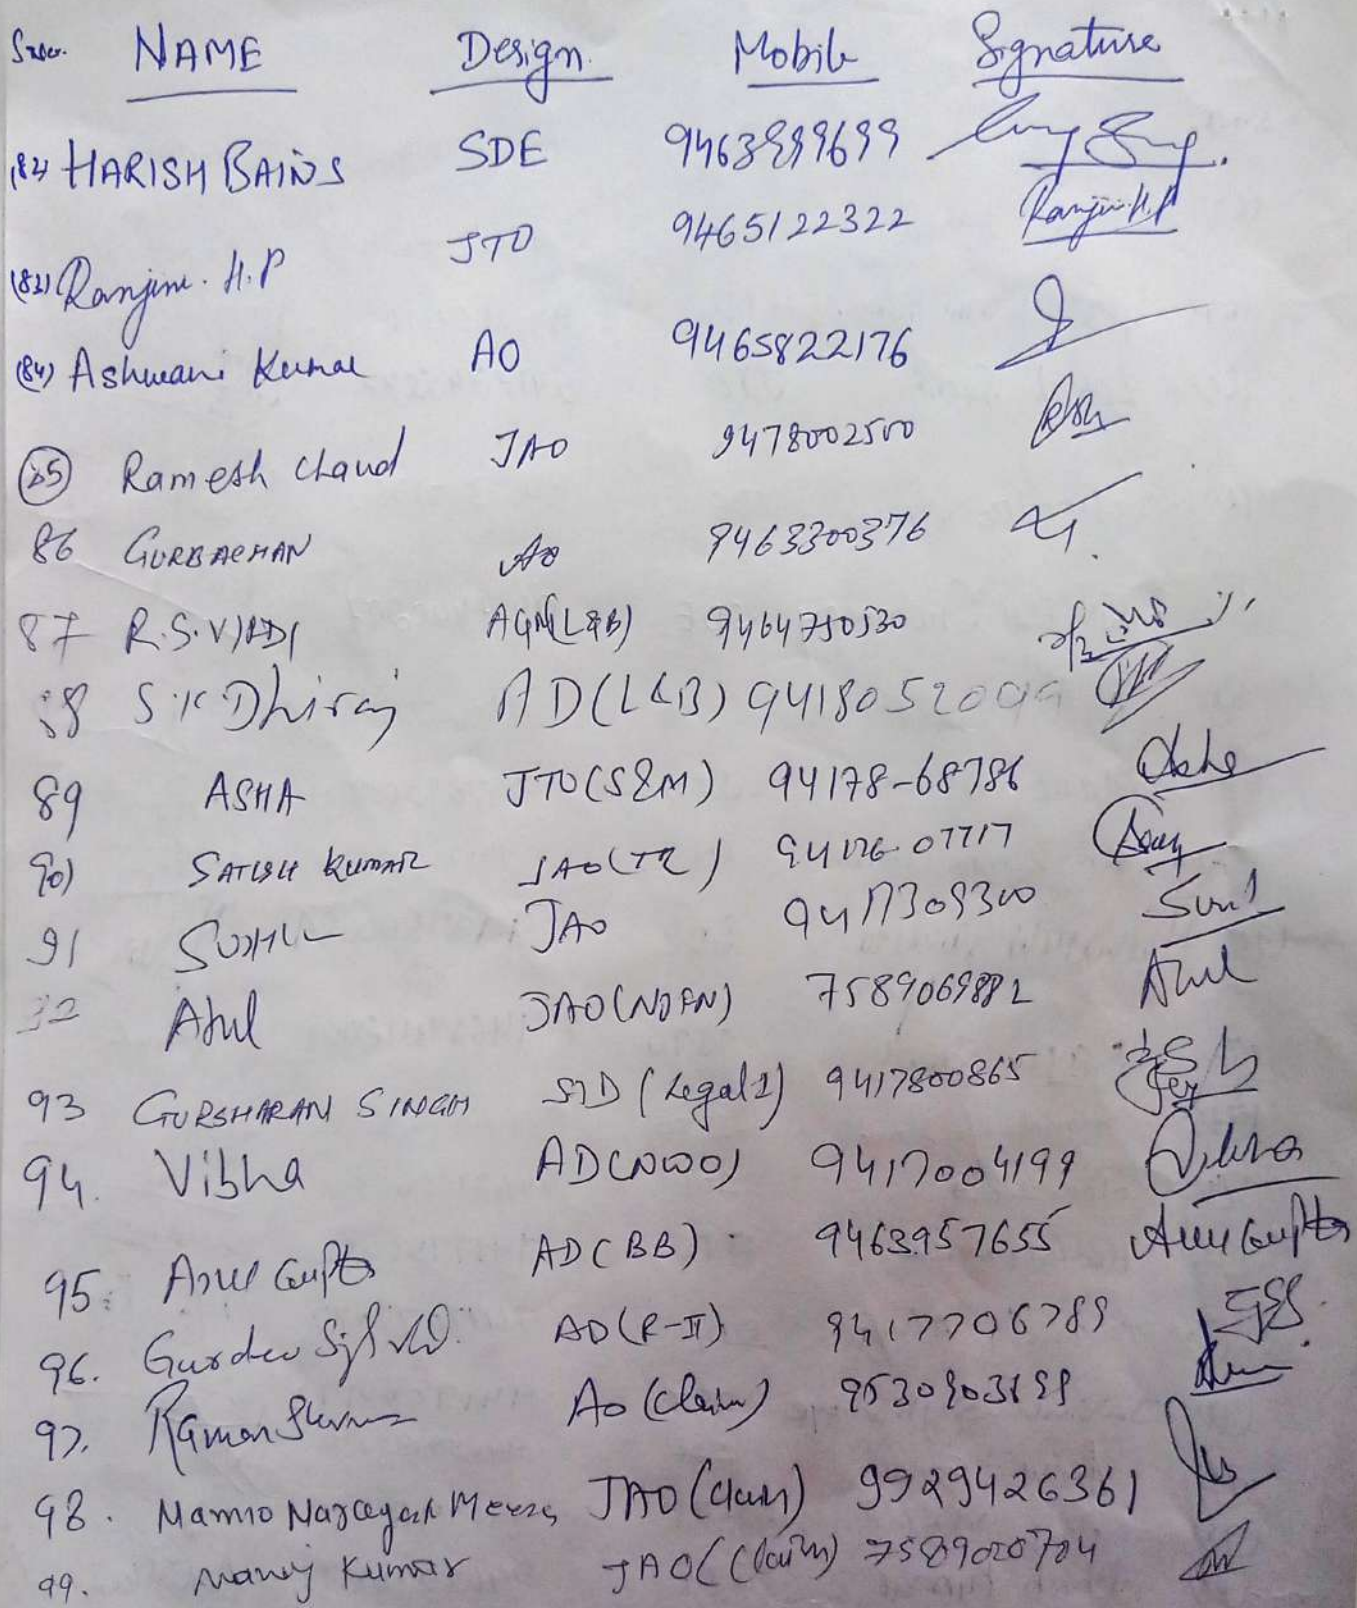 NAME Design. Mobile Signature
(82) HARISH BAINS SDE 9463999699
(83) Ranjini. H.P JTO 9465122322 Ranjini.H.P
(84) Ashwani Kumar AO 9465822176
85 Ramesh Chand JAO 9478002500
86 GURBACHAN AO 9463300376
87 R.S.VIRDI AGM(L&B) 9464750530
88 S.K Dhiraj AD(L&B)
89 ASHA JTO(S&M) 94178-68786 Asha
90) SATISH KUMAR JAO(TR) 94176-07717
91 JAO 9417309300 Sunil
92 Atul JAO(NOFN) 7589069882 Atul
93 GURSHARAN SINGH (Legal 1) 9417800865
94. Vibha AD(NWO) 9417004199 Vibha
95. Gupta AD(BB). 9463957655 Gupta
96. Gurdev AD(R-II) 9417706789
97. Raman Sharma AO (Claim)
98. Mamro Narayan Meena, JAO (Claim) 9929426361
99. Manoj Kumar JAO (Claim) 7589020704